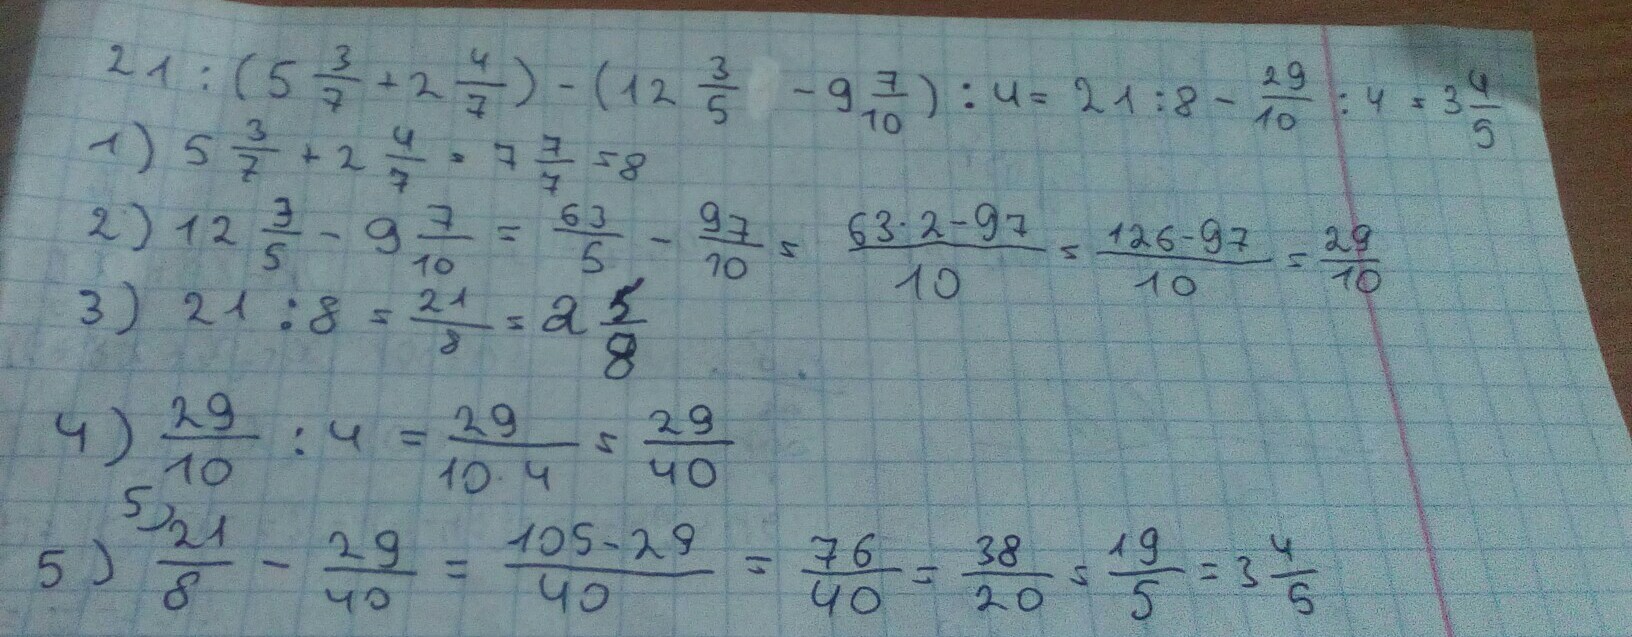 21 : (5 3/7 + 2 4/7) - (12 3/5 - 9 7/10) : 4 = 21 : 8 - 29/10 : 4 = 3 4/5
1) 5 3/7 + 2 4/7 = 7 7/7 = 8
2) 12 3/5 - 9 7/10 = 63/5 - 97/10 = 63·2-97/10 = 126-97/10 = 29/10
3) 21 : 8 = 21/8 = 2 5/8
4) 29/10 : 4 = 29/10·4 = 29/40
5) 5) 21/8 - 29/40 = 105-29/40 = 76/40 = 38/20 = 19/5 = 3 4/5